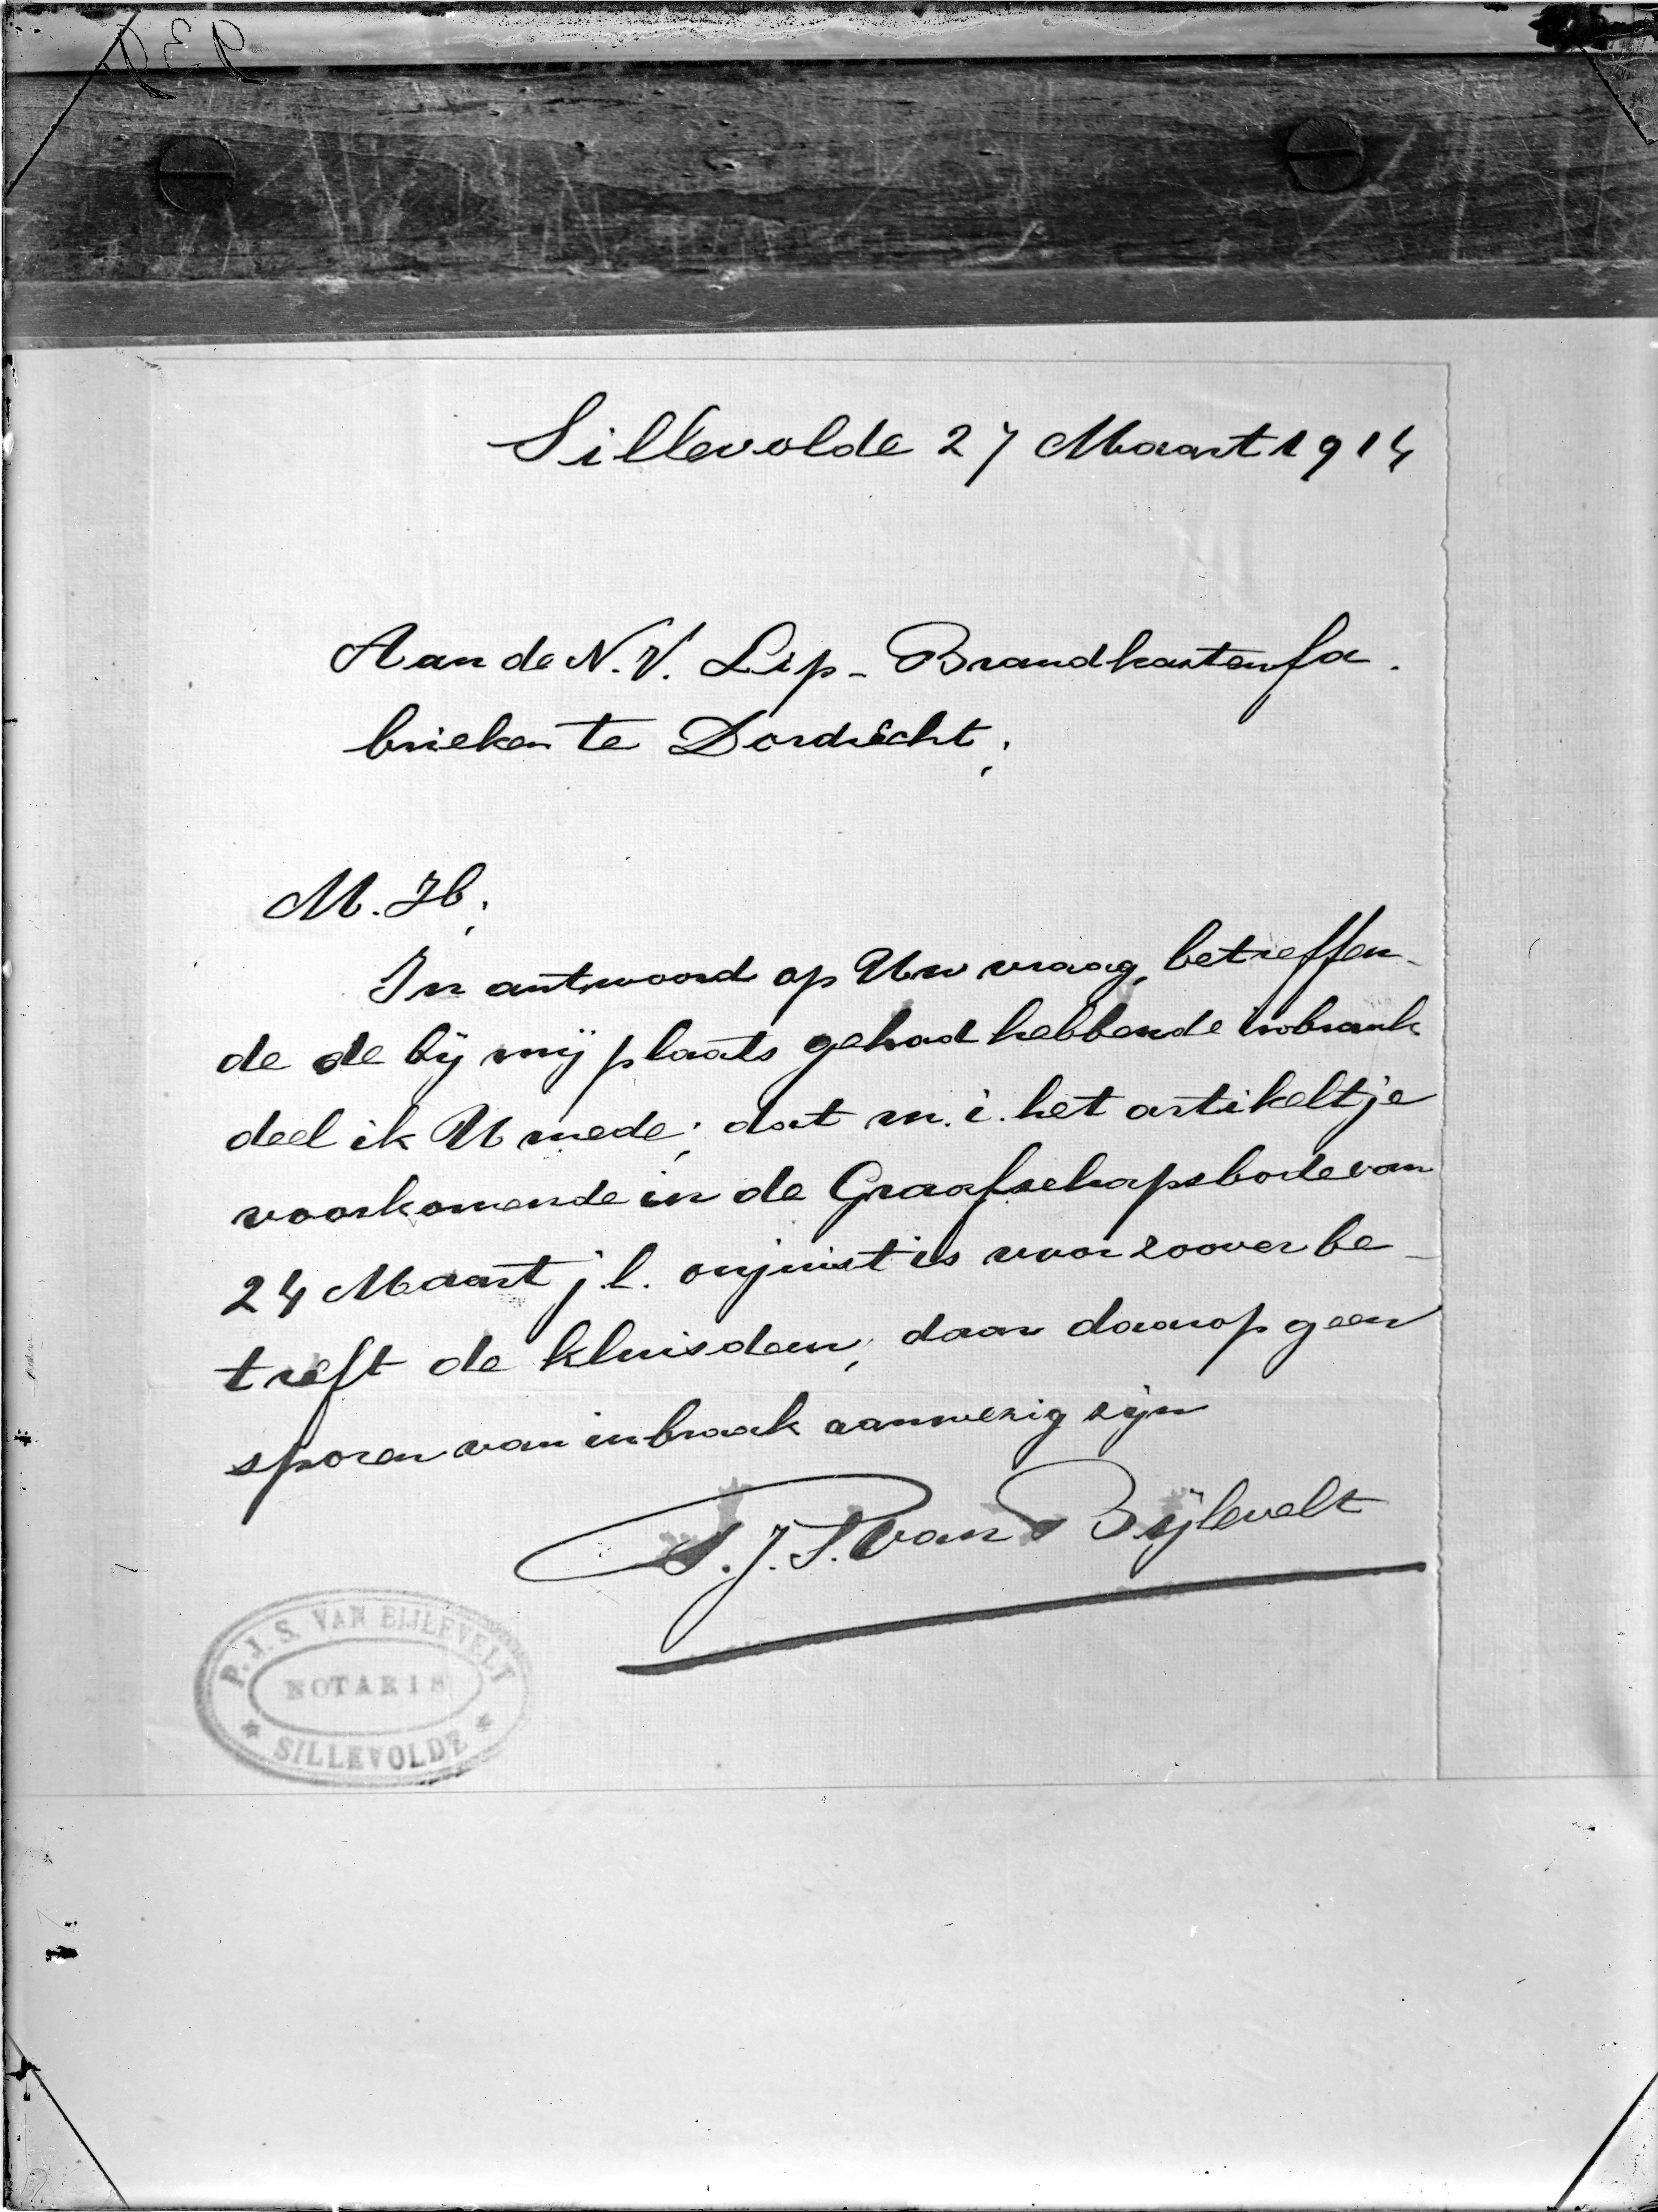 Sillevolde 27 Maart 1914
Aan de N.V. Lip-Brandkastenfa-
brieken te Dordrecht,
M. H,
In antwoord op Uw vraag, betreffen-
de de bij mij plaats gehad hebbende inbraak
deel ik U mede, dat m.i. het artikeltje
voorkomende in de Graafschapsbode van
24 Maart j.l. onjuist is voor zoover be-
treft de kluisdeur, daar daarop geen
sporen van inbraak aanwezig zijn
P.J.S. van Bijlevelt
P.J.S. VAN BIJLEVELT
NOTARIS
* SILLEVOLDE *